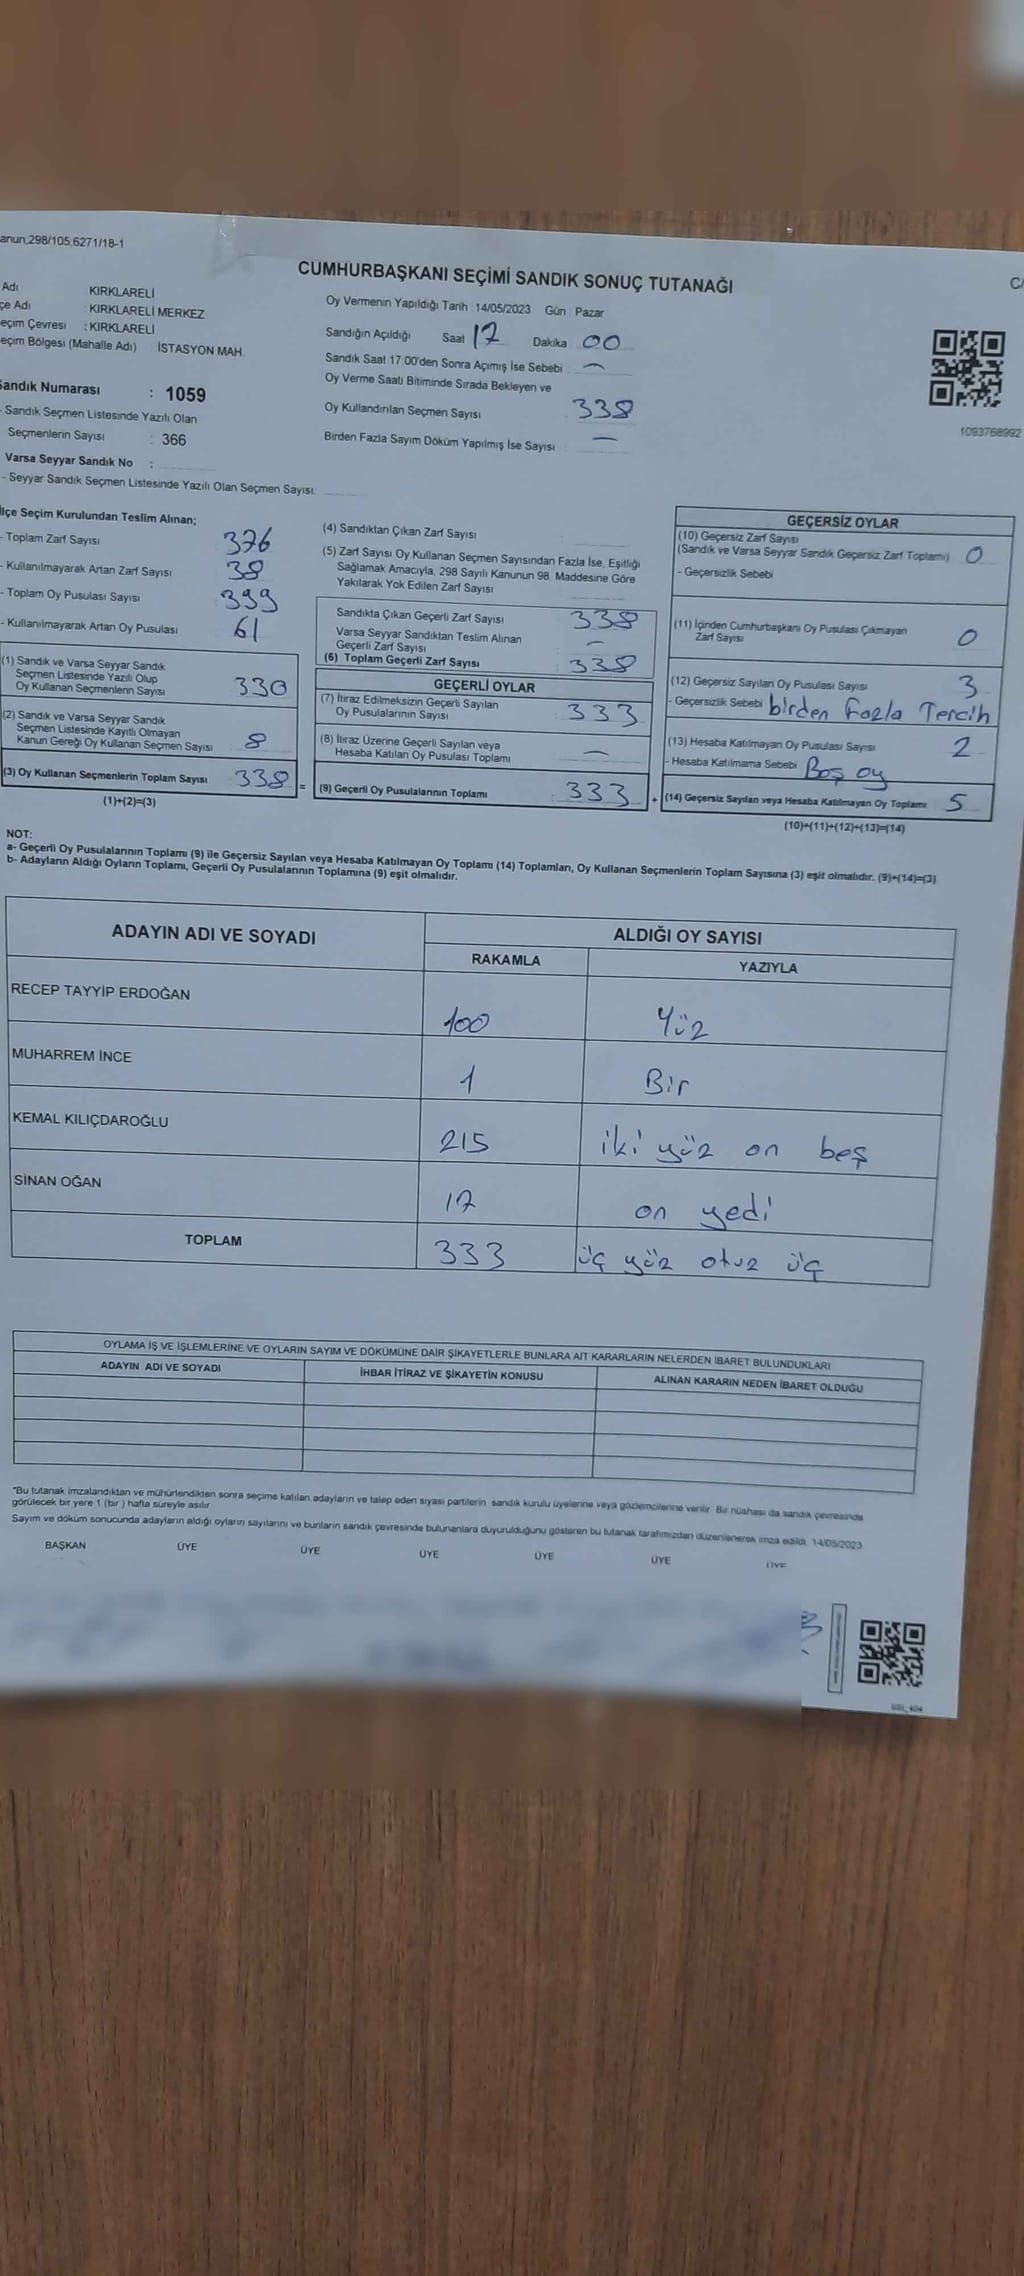 anun,298/105,6271/18-1
CUMHURBAŞKANI SEÇİMİ SANDIK SONUÇ TUTANAĞI
Adı KIRKLARELİ
çe Adı : KIRKLARELİ MERKEZ
eçim Çevresi : KIRKLARELİ
eçim Bölgesi (Mahalle Adı) İSTASYON MAH.
Sandık Numarası : 1059
- Sandık Seçmen Listesinde Yazılı Olan
Seçmenlerin Sayısı : 366
Varsa Seyyar Sandık No :
- Seyyar Sandık Seçmen Listesinde Yazılı Olan Seçmen Sayısı:
Oy Vermenin Yapıldığı Tarih : 14/05/2023 Gün : Pazar
Sandığın Açıldığı Saat 17 Dakika 00
Sandık Saat 17:00'den Sonra Açımış İse Sebebi : —
Oy Verme Saati Bitiminde Sırada Bekleyen ve
Oy Kullandırılan Seçmen Sayısı : 338
Birden Fazla Sayım Döküm Yapılmış İse Sayısı : —
1093768992
İlçe Seçim Kurulundan Teslim Alınan;
- Toplam Zarf Sayısı 376
- Kullanılmayarak Artan Zarf Sayısı 38
- Toplam Oy Pusulası Sayısı 399
- Kullanılmayarak Artan Oy Pusulası 61
(1) Sandık ve Varsa Seyyar Sandık
Seçmen Listesinde Yazılı Olup
Oy Kullanan Seçmenlerin Sayısı 330
(2) Sandık ve Varsa Seyyar Sandık
Seçmen Listesinde Kayıtlı Olmayan
Kanun Gereği Oy Kullanan Seçmen Sayısı 8
(3) Oy Kullanan Seçmenlerin Toplam Sayısı 338 =
(1)+(2)=(3)
(4) Sandıktan Çıkan Zarf Sayısı :
(5) Zarf Sayısı Oy Kullanan Seçmen Sayısından Fazla İse, Eşitliği
Sağlamak Amacıyla, 298 Sayılı Kanunun 98. Maddesine Göre
Yakılarak Yok Edilen Zarf Sayısı
Sandıkta Çıkan Geçerli Zarf Sayısı : 338
Varsa Seyyar Sandıktan Teslim Alınan
Geçerli Zarf Sayısı : —
(6) Toplam Geçerli Zarf Sayısı : 338
GEÇERLİ OYLAR
(7) İtiraz Edilmeksizin Geçerli Sayılan
Oy Pusulalarının Sayısı : 333
(8) İtiraz Üzerine Geçerli Sayılan veya
Hesaba Katılan Oy Pusulası Toplamı : —
(9) Geçerli Oy Pusulalarının Toplamı : 333 +
GEÇERSİZ OYLAR
(10) Geçersiz Zarf Sayısı
(Sandık ve Varsa Seyyar Sandık Geçersiz Zarf Toplamı) 0
- Geçersizlik Sebebi
(11) İçinden Cumhurbaşkanı Oy Pusulası Çıkmayan
Zarf Sayısı 0
(12) Geçersiz Sayılan Oy Pusulası Sayısı 3
- Geçersizlik Sebebi birden Fazla Tercih
(13) Hesaba Katılmayan Oy Pusulası Sayısı 2
- Hesaba Katılmama Sebebi Boş oy
(14) Geçersiz Sayılan veya Hesaba Katılmayan Oy Toplamı 5
(10)+(11)+(12)+(13)=(14)
NOT:
a- Geçerli Oy Pusulalarının Toplamı (9) ile Geçersiz Sayılan veya Hesaba Katılmayan Oy Toplamı (14) Toplamları, Oy Kullanan Seçmenlerin Toplam Sayısına (3) eşit olmalıdır. (9)+(14)=(3)
b- Adayların Aldığı Oyların Toplamı, Geçerli Oy Pusulalarının Toplamına (9) eşit olmalıdır.
ADAYIN ADI VE SOYADI
ALDIĞI OY SAYISI
RAKAMLA YAZIYLA
RECEP TAYYİP ERDOĞAN 100 Yüz
MUHARREM İNCE 1 Bir
KEMAL KILIÇDAROĞLU 215 iki yüz on beş
SİNAN OĞAN 17 on yedi
TOPLAM 333 üç yüz otuz üç
OYLAMA İŞ VE İŞLEMLERİNE VE OYLARIN SAYIM VE DÖKÜMÜNE DAİR ŞİKAYETLERLE BUNLARA AİT KARARLARIN NELERDEN İBARET BULUNDUKLARI
ADAYIN ADI VE SOYADI İHBAR İTİRAZ VE ŞİKAYETİN KONUSU ALINAN KARARIN NEDEN İBARET OLDUĞU
*Bu tutanak imzalandıktan ve mühürlendikten sonra seçime katılan adayların ve talep eden siyasi partilerin sandık kurulu üyelerine veya gözlemcilerine verilir. Bir nüshası da sandık çevresinde
görülecek bir yere 1 (bir ) hafta süreyle asılır
Sayım ve döküm sonucunda adayların aldığı oyların sayılarını ve bunların sandık çevresinde bulunanlara duyurulduğunu gösteren bu tutanak tarafımızdan düzenlenerek imza edildi. 14/05/2023
BAŞKAN ÜYE ÜYE ÜYE ÜYE ÜYE ÜYE